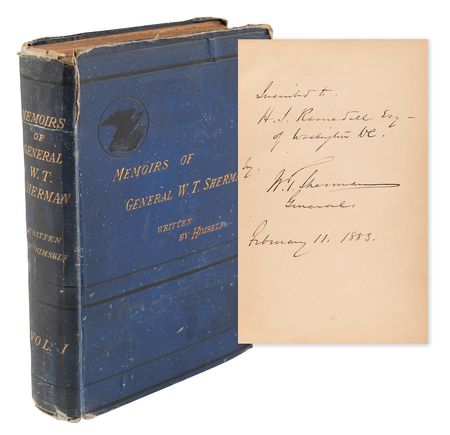 MEMOIRS
OF
GENERAL
W. T.
SHERMAN
WRITTEN
BY HIMSELF
VOL. I
MEMOIRS OF
GENERAL W. T. SHERMA
WRITTEN
BY HIMSELF
Inscribed to
H. J. Ramsdell Esq -
of Washington DC.
by
W. T. Sherman
General.
February 11. 1883.